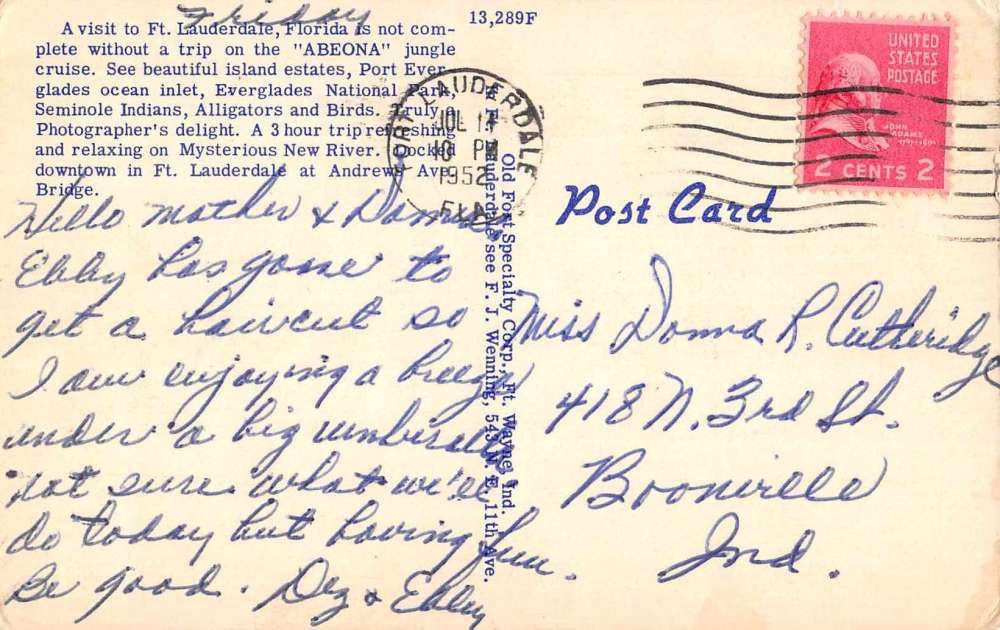 Friday
A visit to Ft. Lauderdale, Florida is not com-
plete without a trip on the "ABEONA" jungle
cruise. See beautiful island estates, Port Ever-
glades ocean inlet, Everglades National Park,
Seminole Indians, Alligators and Birds. Truly a
Photographer's delight. A 3 hour trip refreshing
and relaxing on Mysterious New River. Docked
downtown in Ft. Lauderdale at Andrews Ave.
Bridge.
13,289F
FORT LAUDERDALE
JUL
10 PM
1952
FLA
UNITED
STATES
POSTAGE
JOHN
ADAMS
1797-1801
2 CENTS 2
Post Card
Hello Mother & Donna.
Ebby has gone to
get a haircut so
I am enjoying a breeze
under a big umbrella
not sure what we'll
do today but having fun.
Be good. Dez & Ebby
Old Fort Specialty Corp., Ft. Wayne, Ind.
Lauderdale see F. J. Wenning, 543 N. E. 11th Ave.
Miss Donna R. Cutheridge
418 N. 3rd St.
Boonville
Ind.